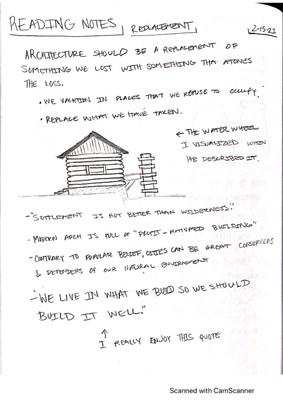 READING NOTES | REPLACEMENT | 2-15-21
ARCHITECTURE SHOULD BE A REPLACEMENT OF
SOMETHING WE LOST WITH SOMETHING THAT ATONES
THE LOSS.
• WE VACATION IN PLACES THAT WE REFUSE TO OCCUPY.
• REPLACE WHAT WE HAVE TAKEN.
← THE WATER WHEEL
I VISUALIZED WHEN
HE DESCRIBED IT.
- "SETTLEMENT IS NOT BETTER THAN WILDERNESS."
- MODERN ARCH IS FULL OF "PROFIT-MOTIVATED BUILDING"
- CONTRARY TO POPULAR BELIEF, CITIES CAN BE GREAT CONSERVERS
& DEFENDERS OF OUR NATURAL GOVERNMENT
- "WE LIVE IN WHAT WE BUILD SO WE SHOULD
BUILD IT WELL."
↑
I REALLY ENJOY THIS QUOTE
Scanned with CamScanner